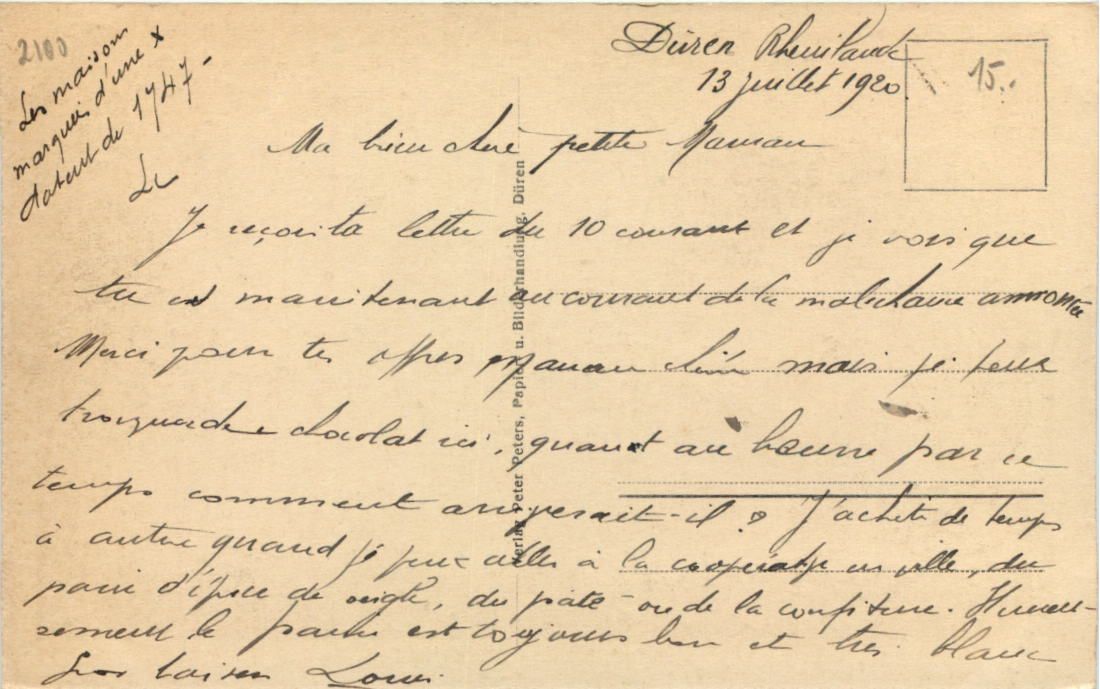 2100
Les maisons
marquées d'une x
datent de 1747 -
Düren Rheinlande
13 juillet 1920
15..
Ma bien chère petite Maman
Je reçois ta lettre du 10 courant et je vois que
tu es maintenant au courant de la méchante
Merci pour tes offres Maman chérie mais je peux
chocolat ici, quant au beurre par ce
temps comment arriverait-il ? J'achète de temps
à autre quand je peux aller à la coopérative en ville, du
pain d'épice de seigle, du pâté ou de la confiture. Heureu-
sement le pain est toujours bon et très blanc
Gros baisers Louis
Verlag Peter Peters, Papier u. Bilderhandlung, Düren